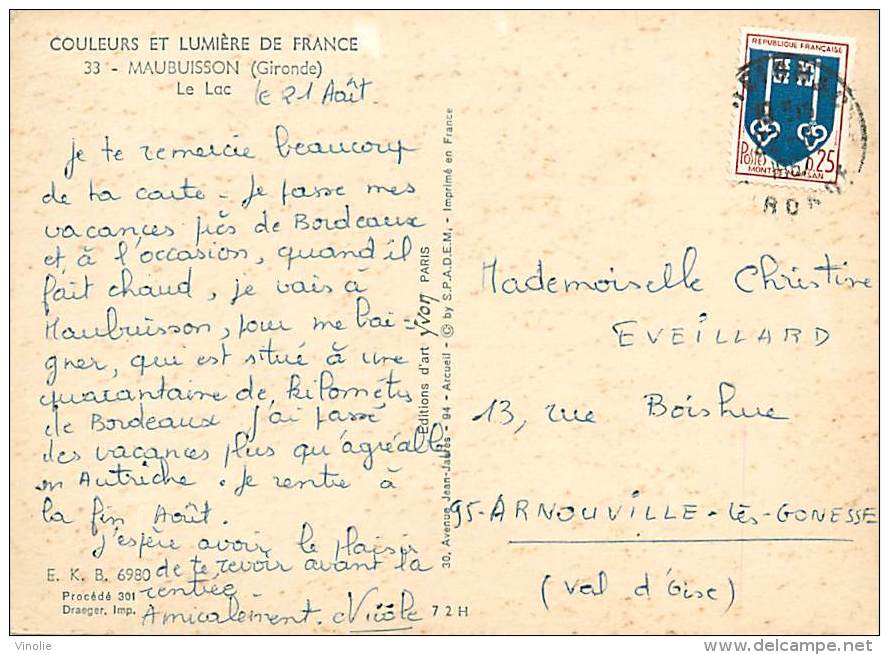 COULEURS ET LUMIÈRE DE FRANCE
33 - MAUBUISSON (Gironde)
Le Lac
le 21 Août.
Je te remercie beaucoup
de ta carte - Je passe mes
vacances près de Bordeaux
et, à l'occasion, quand il
fait chaud, je vais à
Maubuisson, pour me bai-
gner, qui est situé à une
quarantaine de kilomètres
de Bordeaux J'ai passé
des vacances plus qu'agréables
en Autriche. Je rentre à
la fin Août.
J'espère avoir le plaisir
de te revoir avant la
rentrée
Amicalement. Nicole
E. K. B. 6980
Procédé 301
Draeger, Imp.
7 2 H
Editions d'art Yvon PARIS
30, Avenue Jean-Jaurès - 94 - Arcueil - © by S.P.A.D.E.M. - Imprimé en France
REPUBLIQUE FRANÇAISE
Postes 0,25
MONT-DE-MARSAN
Mademoiselle Christine
EVEILLARD
13, rue Boishue
95-ARNOUVILLE-lès-GONESSE
(Val d'Oise)
Vinolie
www.delcampe.net